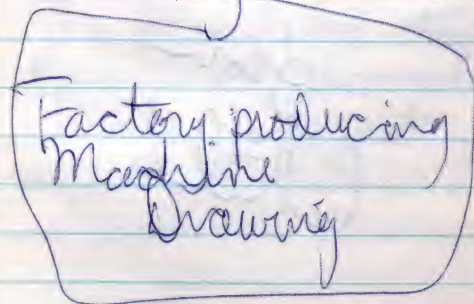 Factory producing
Machine
Drawing